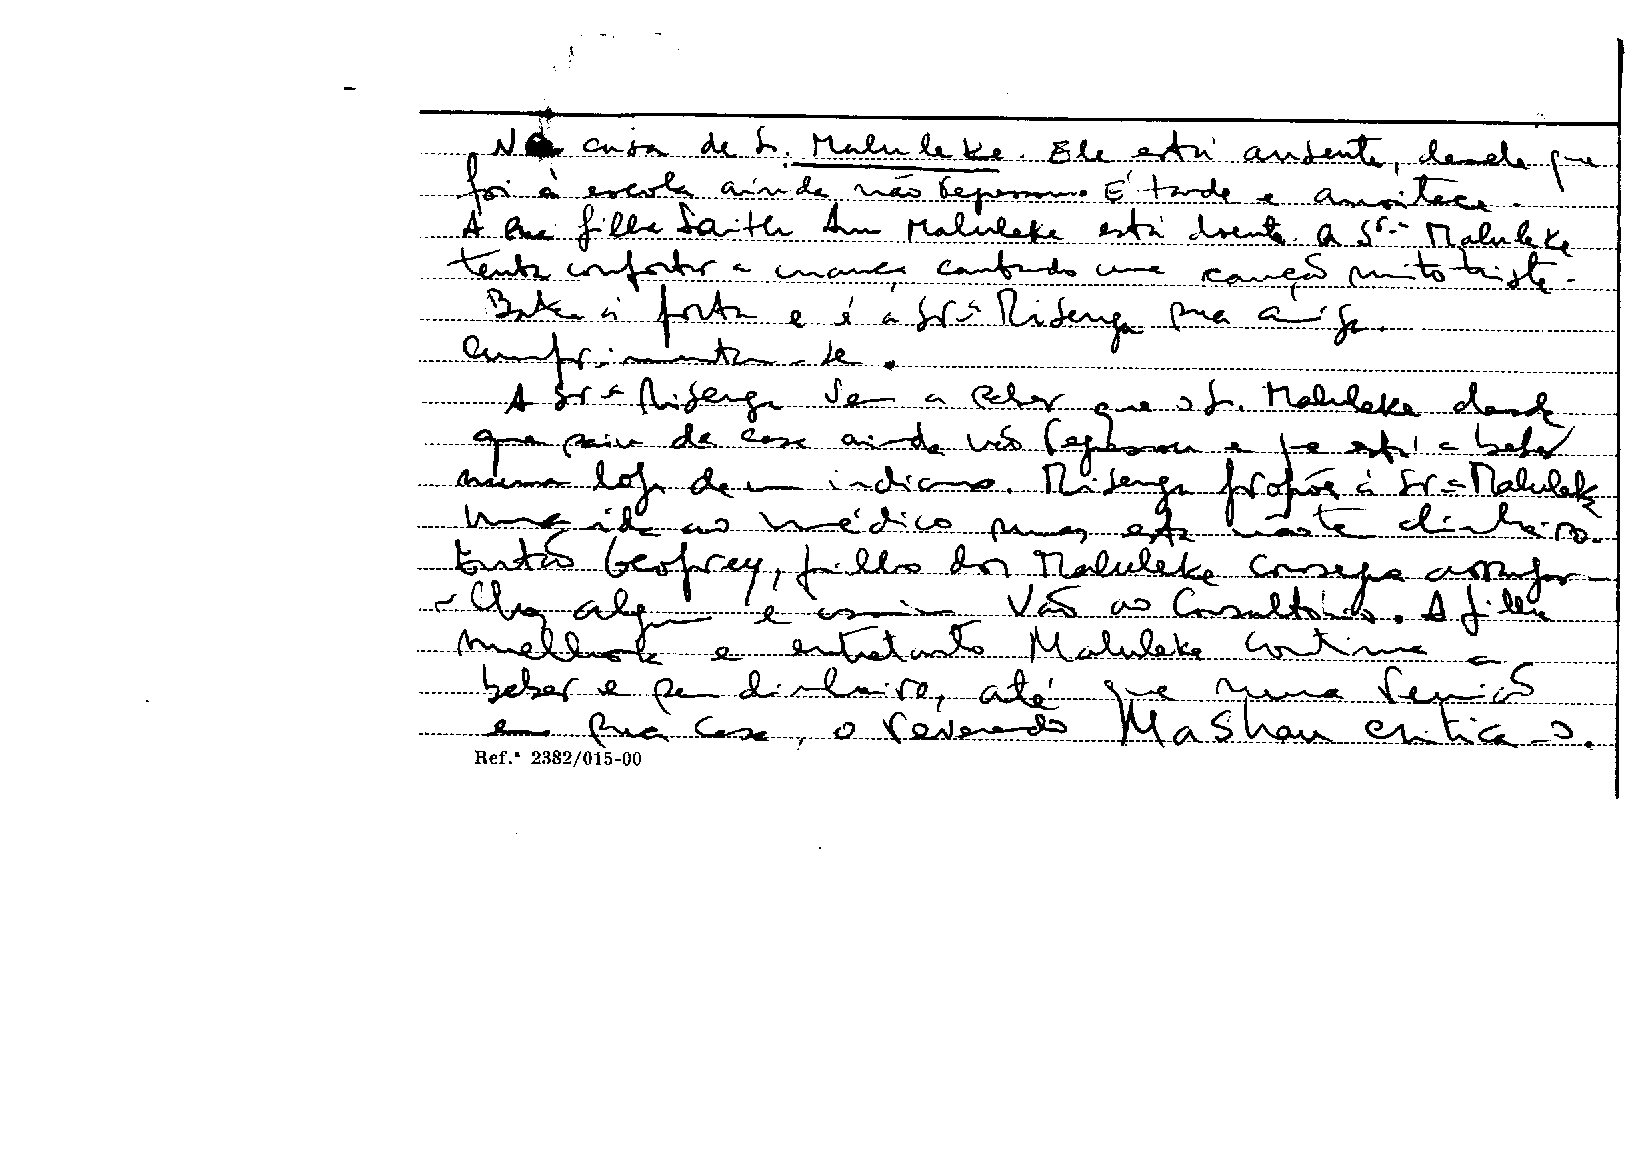 Na casa de Sr. Maluleke. Ele está ausente, desde que
foi à escola ainda não regressou. É tarde e anoitece.
A sua filha Saith Ann Maluleke está doente. A Srª Maluleke
tenta confortar a criança cantando uma canção muito triste.
Batem à porta e é a Srª Risenga sua amiga.
Cumprimentam-se.
A Srª Risenga vem a saber que o Sr. Maluleke desde
que saiu de casa ainda não regressou e está a beber
numa loja de um indiano. Risenga propõe à Srª Maluleke
uma ida ao médico mas esta não tem dinheiro.
Então Geofrey, filho dos Maluleke consegue arranjar-
-lhes algum e assim vão ao Consultório. A filha
melhora e entretanto Maluleke continua a
beber e sem dinheiro, até que numa reunião
em sua casa, o reverendo Mashau critica-o.
Ref.ª 2382/015-00